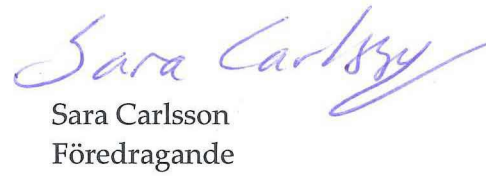 Sara Carlsson
Sara Carlsson
Föredragande